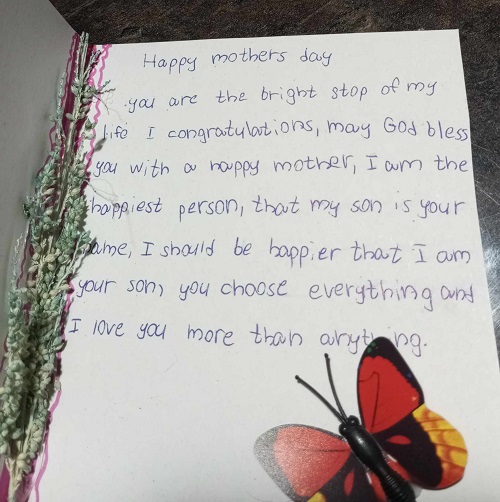 Happy mothers day
you are the bright stop of my
life I congratulations, may God bless
you with a happy mother, I am the
happiest person, that my son is your
ame, I should be happier that I am
your son, you choose everything and
I love you more than anything.